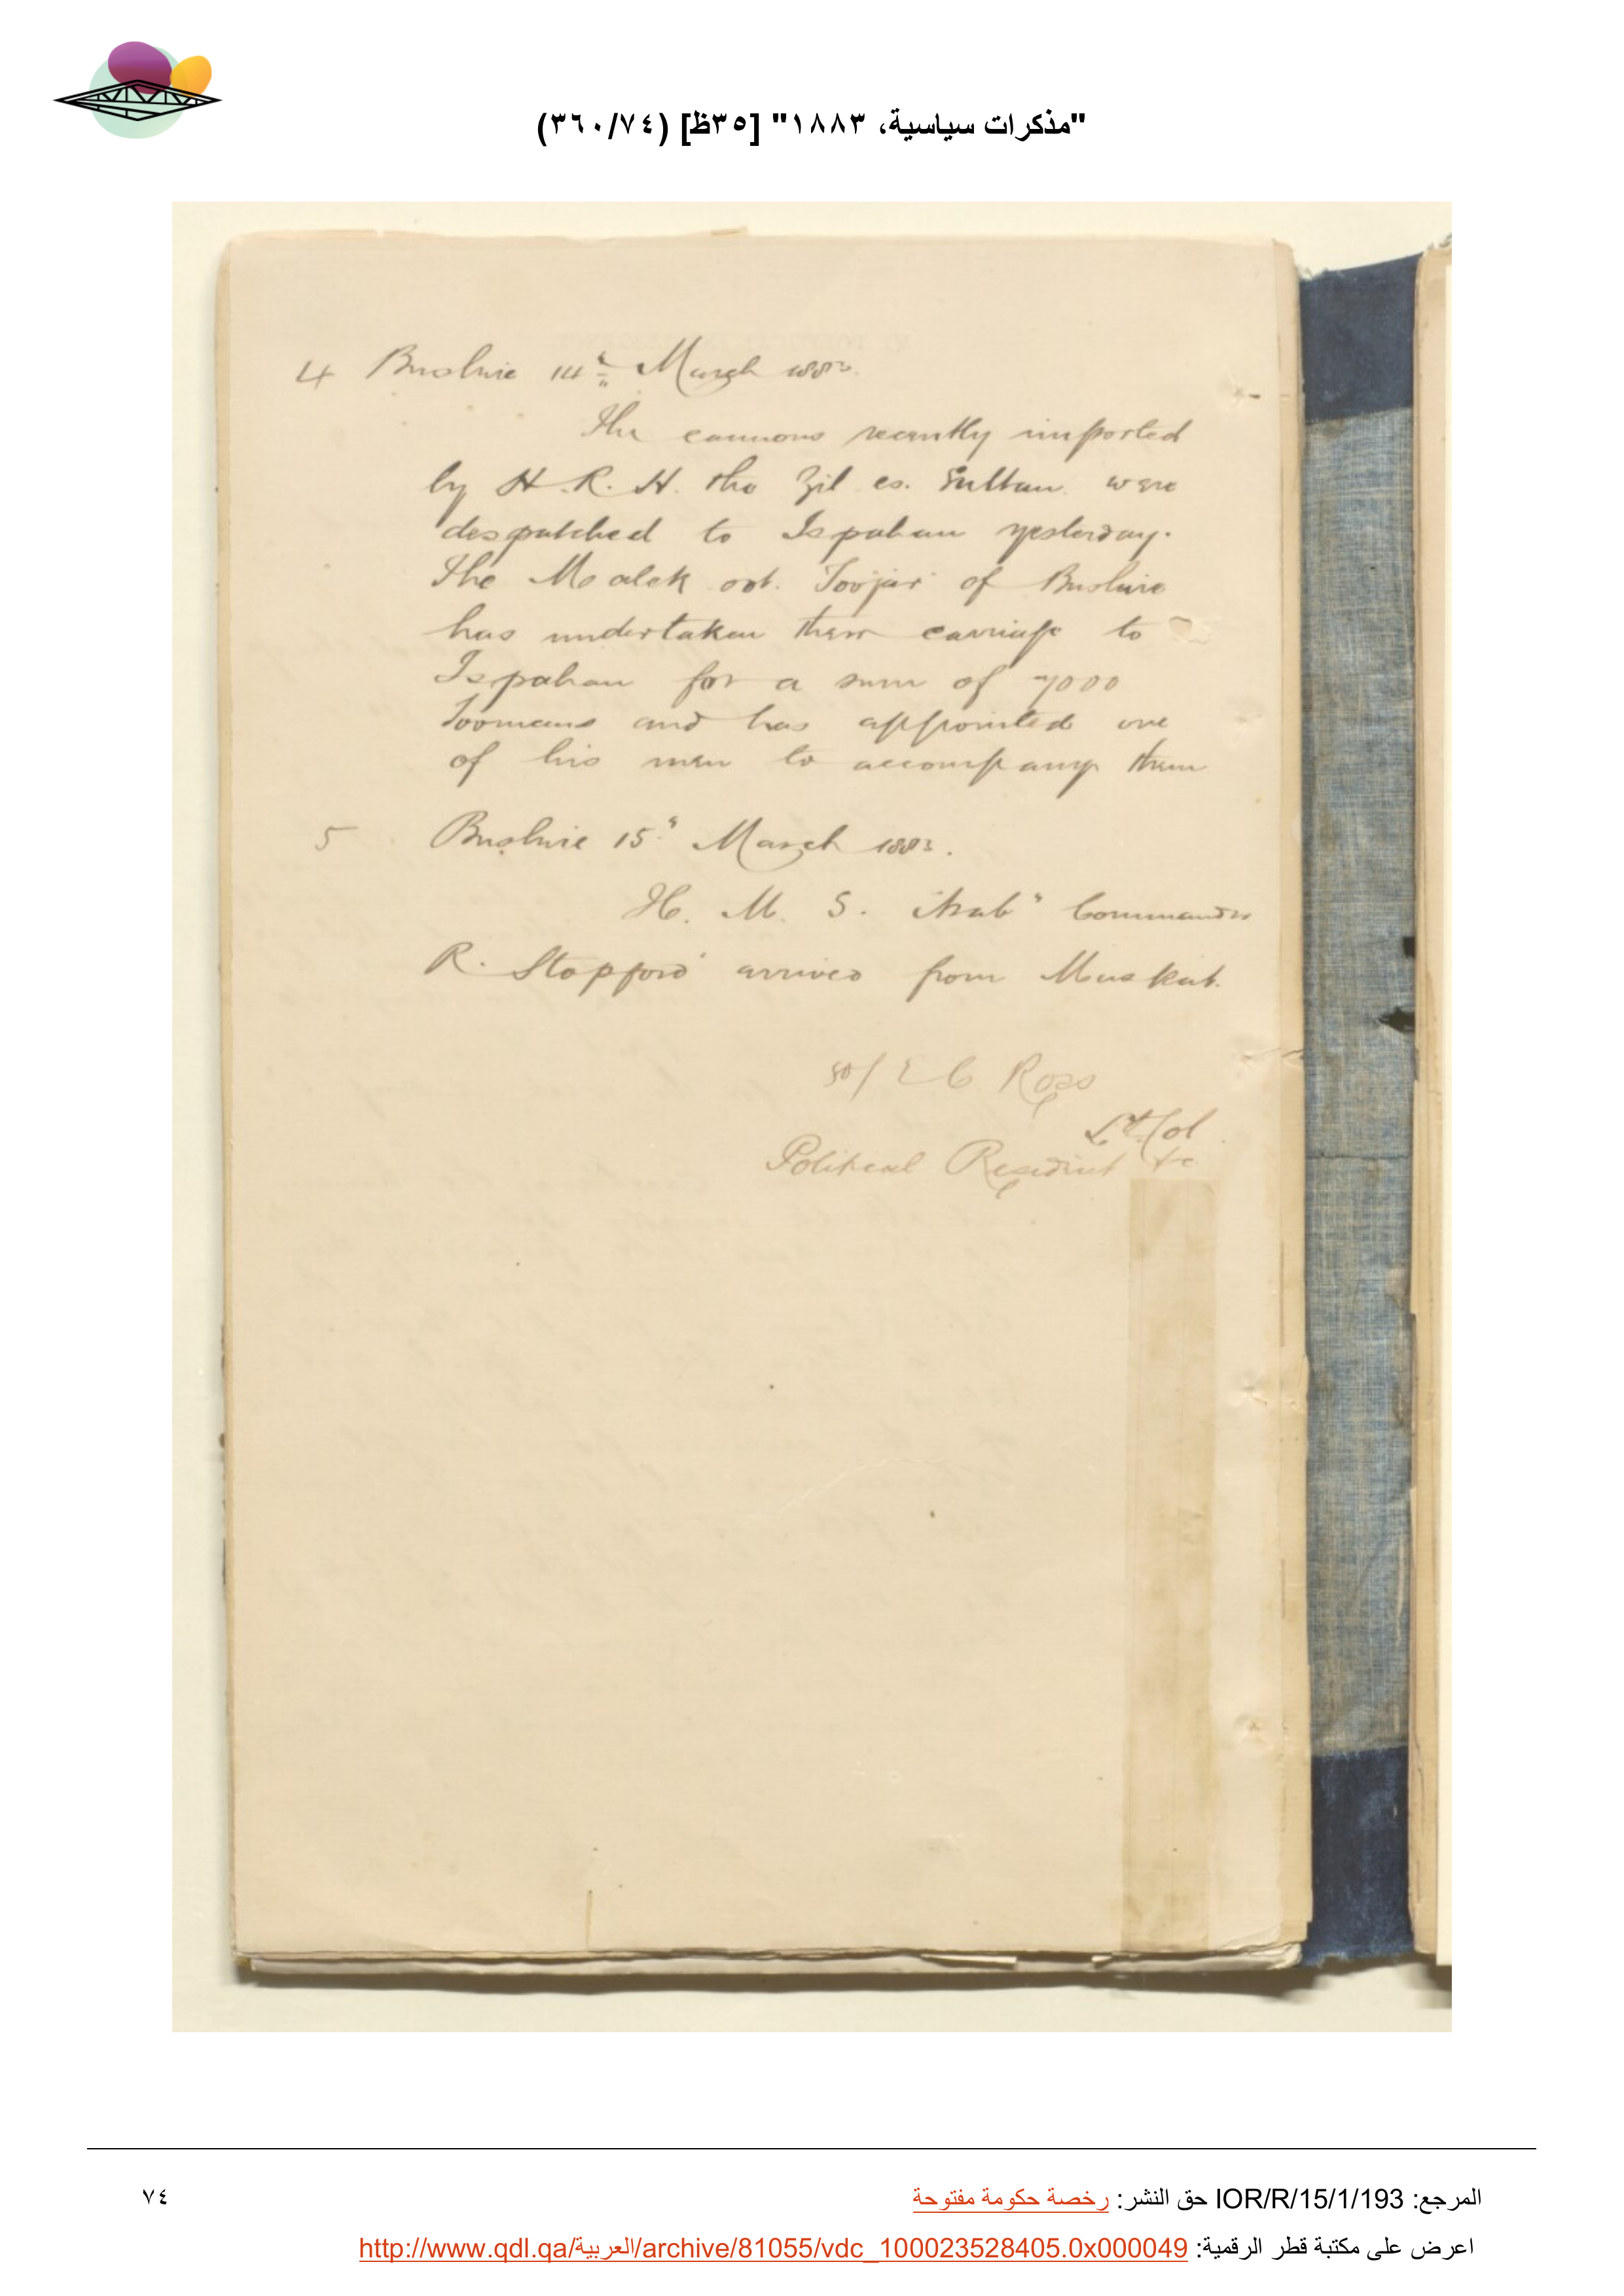 "مذكرات سياسية، ١٨٨٣" [٣٥ظ] (٣٦٠/٧٤)
4 Bushire 14th March 1883.
The cannons recently imported
by H.R.H. the Zil es. Sultan were
despatched to Ispahan yesterday.
The Malek oot. Toojar of Bushire
has undertaken their carriage to
Ispahan for a sum of 7000
Toomans and has appointed one
of his men to accompany them
5 Bushire 15" March 1883.
H. M. S. "Arab" Commander
R. Stopford arrived from Muskat.
sd/ E C Ross
Lt Col
Political Resident &c.
المرجع: IOR/R/15/1/193 حق النشر: رخصة حكومة مفتوحة
٧٤
اعرض على مكتبة قطر الرقمية: http://www.qdl.qa/العربية/archive/81055/vdc_100023528405.0x000049